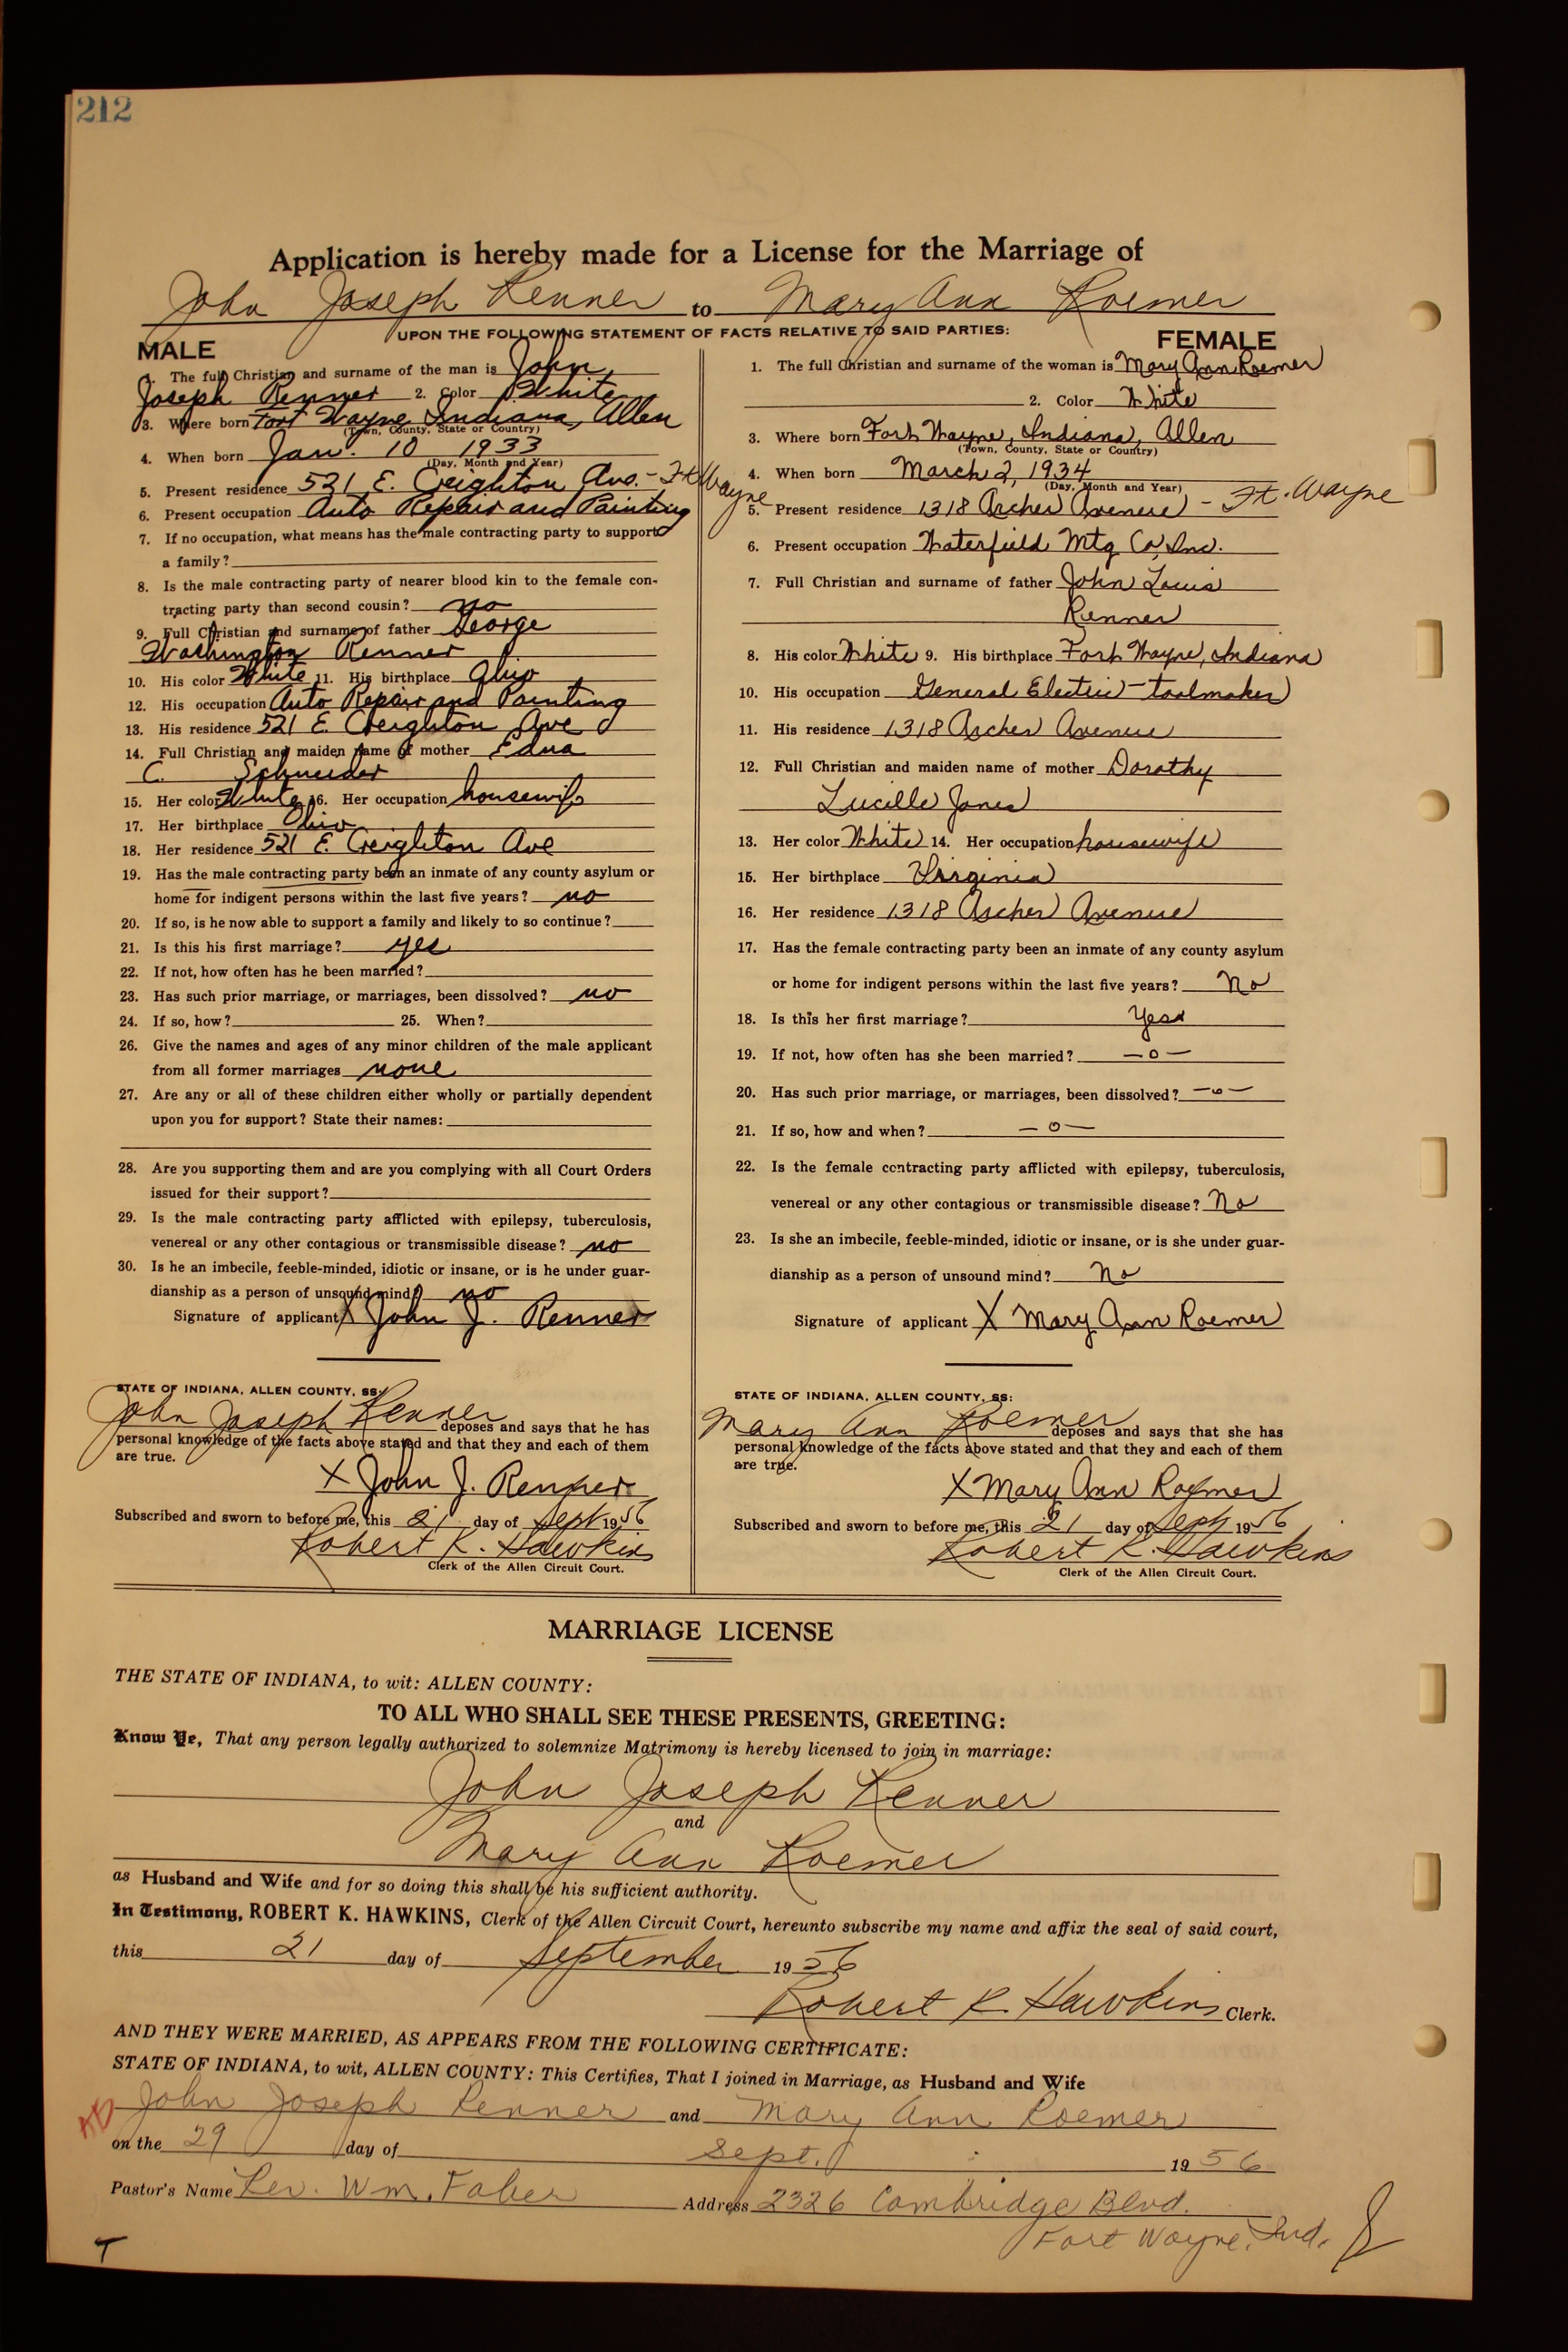 212
Application is hereby made for a License for the Marriage of
John Joseph Renner to Mary Ann Roemer
UPON THE FOLLOWING STATEMENT OF FACTS RELATIVE TO SAID PARTIES:
MALE
1. The full Christian and surname of the man is John
Joseph Renner 2. Color White
3. Where born Fort Wayne Indiana, Allen
(Town, County, State or Country)
4. When born Jan. 10 1933
(Day, Month and Year)
5. Present residence 521 E. Creighton Ave. - Ft Wayne
6. Present occupation Auto Repair and Painting
7. If no occupation, what means has the male contracting party to support
a family?
8. Is the male contracting party of nearer blood kin to the female con-
tracting party than second cousin? no
9. Full Christian and surname of father George
Washington Renner
10. His color White 11. His birthplace Ohio
12. His occupation Auto Repair and Painting
13. His residence 521 E. Creighton Ave
14. Full Christian and maiden name of mother Edna
C. Schneider
15. Her color White 16. Her occupation housewife
17. Her birthplace Ohio
18. Her residence 521 E. Creighton Ave
19. Has the male contracting party been an inmate of any county asylum or
home for indigent persons within the last five years? no
20. If so, is he now able to support a family and likely to so continue?
21. Is this his first marriage? yes
22. If not, how often has he been married?
23. Has such prior marriage, or marriages, been dissolved? no
24. If so, how? 25. When?
26. Give the names and ages of any minor children of the male applicant
from all former marriages none
27. Are any or all of these children either wholly or partially dependent
upon you for support? State their names:
28. Are you supporting them and are you complying with all Court Orders
issued for their support?
29. Is the male contracting party afflicted with epilepsy, tuberculosis,
venereal or any other contagious or transmissible disease? no
30. Is he an imbecile, feeble-minded, idiotic or insane, or is he under guar-
dianship as a person of unsound mind? no
Signature of applicant X John J. Renner
STATE OF INDIANA, ALLEN COUNTY, SS:
John Joseph Renner deposes and says that he has
personal knowledge of the facts above stated and that they and each of them
are true.
X John J. Renner
Subscribed and sworn to before me, this 21 day of Sept 1956
Robert K. Hawkins
Clerk of the Allen Circuit Court.
FEMALE
1. The full Christian and surname of the woman is Mary Ann Roemer
2. Color White
3. Where born Fort Wayne, Indiana, Allen
(Town, County, State or Country)
4. When born March 2, 1934
(Day, Month and Year)
5. Present residence 1318 Archer Avenue - Ft. Wayne
6. Present occupation Waterfield Mtg Co, Inc.
7. Full Christian and surname of father John Louis
Renner
8. His color White 9. His birthplace Fort Wayne, Indiana
10. His occupation General Electric - toolmaker
11. His residence 1318 Archer Avenue
12. Full Christian and maiden name of mother Dorothy
Lucille Jones
13. Her color White 14. Her occupation housewife
15. Her birthplace Virginia
16. Her residence 1318 Archer Avenue
17. Has the female contracting party been an inmate of any county asylum
or home for indigent persons within the last five years? No
18. Is this her first marriage? Yes
19. If not, how often has she been married? — o —
20. Has such prior marriage, or marriages, been dissolved? — o —
21. If so, how and when? — o —
22. Is the female contracting party afflicted with epilepsy, tuberculosis,
venereal or any other contagious or transmissible disease? No
23. Is she an imbecile, feeble-minded, idiotic or insane, or is she under guar-
dianship as a person of unsound mind? No
Signature of applicant X Mary Ann Roemer
STATE OF INDIANA, ALLEN COUNTY, SS:
Mary Ann Roemer deposes and says that she has
personal knowledge of the facts above stated and that they and each of them
are true.
X Mary Ann Roemer
Subscribed and sworn to before me, this 21 day of Sept 1956
Robert K. Hawkins
Clerk of the Allen Circuit Court.
MARRIAGE LICENSE
THE STATE OF INDIANA, to wit: ALLEN COUNTY:
TO ALL WHO SHALL SEE THESE PRESENTS, GREETING:
Know Ye, That any person legally authorized to solemnize Matrimony is hereby licensed to join in marriage:
John Joseph Renner
and
Mary Ann Roemer
as Husband and Wife and for so doing this shall be his sufficient authority.
In Testimony, ROBERT K. HAWKINS, Clerk of the Allen Circuit Court, hereunto subscribe my name and affix the seal of said court,
this 21 day of September 1956
Robert K. Hawkins Clerk.
AND THEY WERE MARRIED, AS APPEARS FROM THE FOLLOWING CERTIFICATE:
STATE OF INDIANA, to wit, ALLEN COUNTY: This Certifies, That I joined in Marriage, as Husband and Wife
John Joseph Renner and Mary Ann Roemer
on the 29 day of Sept. 1956
Pastor's Name Rev. Wm. Faber Address 2326 Cambridge Blvd.
Fort Wayne, Ind.
T